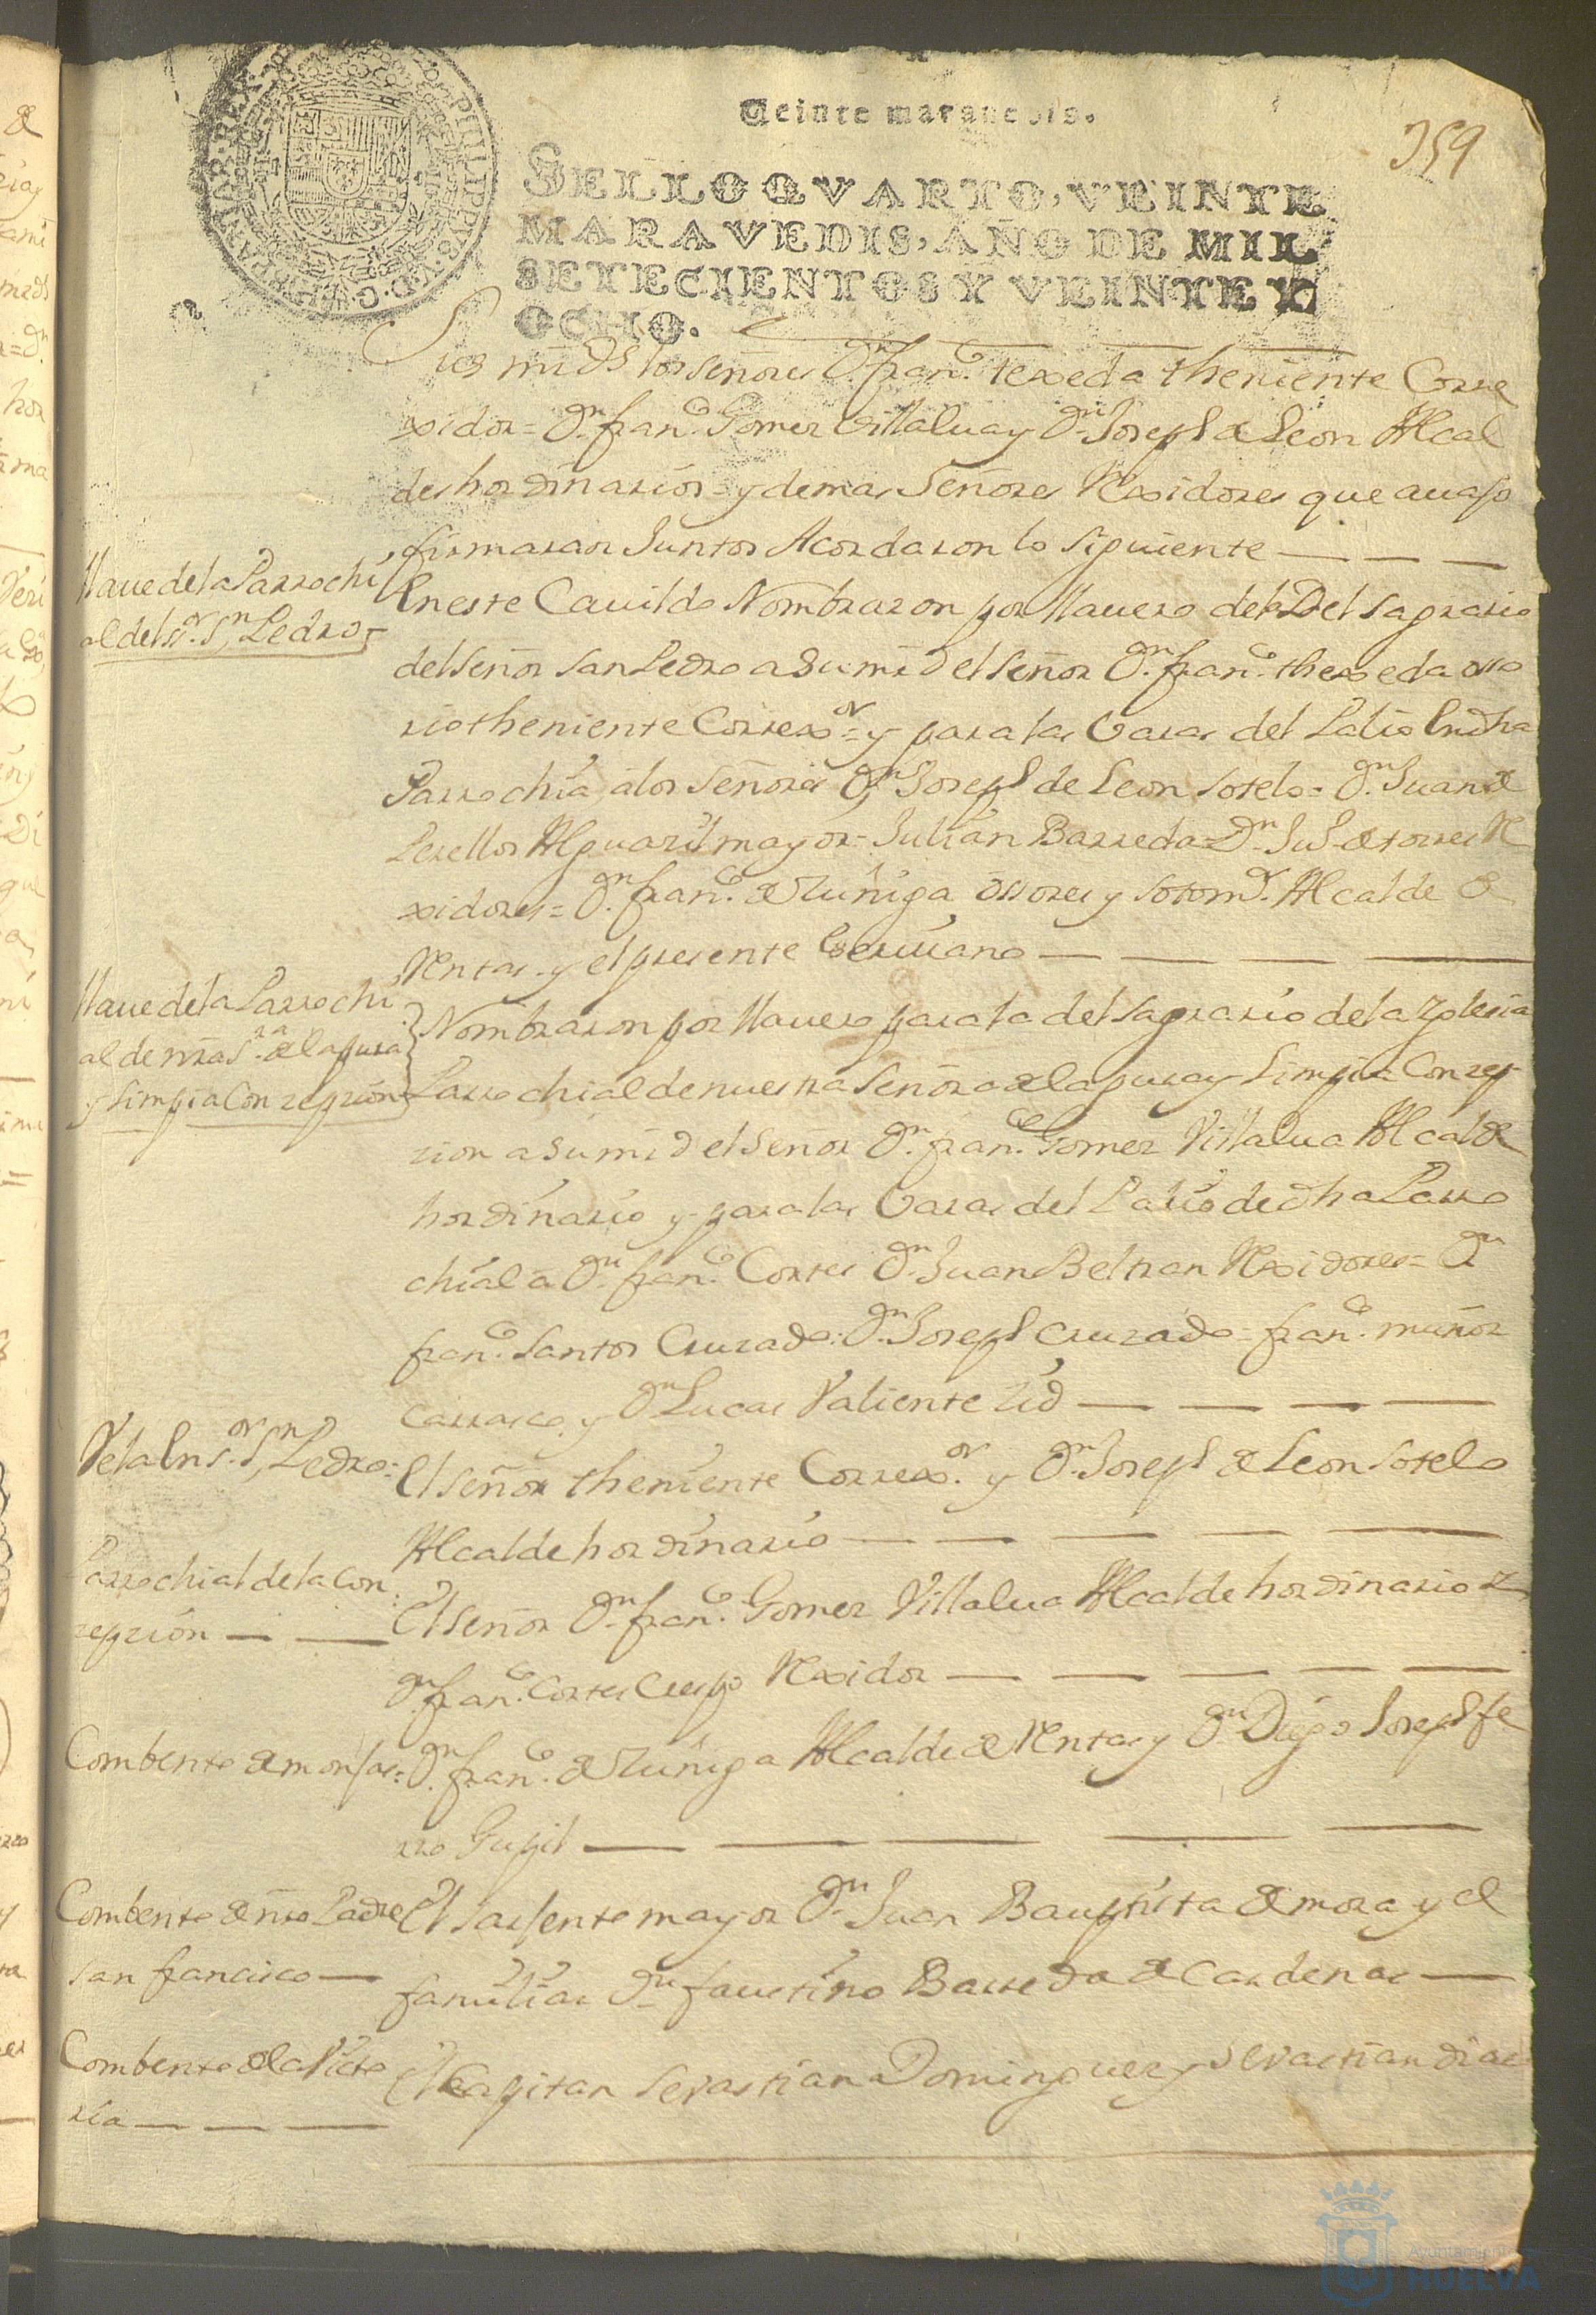 Veinte maravedis.
359
SELLO QVARTO, VEINTE
MARAVEDIS, AÑO DE MIL
SETECIENTOS Y VEINTE Y
OCHO.
los señores Dn. franco. texeda theniente Corre
xidor = Dn. franco. Gomez Villalua y Dn. Joseph de Leon Alcal
des hordinarios y demas Señores Rexidores que auajo
firmaran Juntos Acordaron lo siguiente
llaue de la Parrochi
al del sr. Sn. Pedro
En este Cauildo Nombraron por llauero del Sagrario
del Señor San Pedro a Su mrd el Señor Dn. franco. thexeda osso
rio theniente Correxor. = y para las Varas del Palio En dha
Parrochia, a los Señores Dn. Joseph de Leon Sotelo = Dn. Juan de
Perellos Alguazil mayor = Julian Barreda = Dn. de torres Re
xidores = Dn. franco. de Zuñiga ossores y Sotomr. Alcalde de
Rentas y el presente Escriuano
llaue de la Parrochi
al de nra Sra. de la pura
y limpia Conzepzion
Nombraron por llauero para la del Sagrario de la Yglesia
Parrochial de nuestra Señora de la pura y Limpia Conzep
zion a Su mrd el Señor Dn. franco. Gomez Villalua Alcalde
hordinario y para las Varas del Palio de dha Parro
chial a Dn. franco. Cortes Dn. Juan Beltran Rexidores = Dn
franco. Santos Cruzado = Dn. Joseph Cruzado = franco. muñoz
carrasco y Dn. Lucas Valiente Zid
Vela En sr. Sn. Pedro =
El Señor theniente Correxor. y Dn. Joseph de Leon Sotelo
Alcalde hordinario
Parrochial de la Con
zepzion
El Señor Dn. franco. Gomez Villalua Alcalde hordinario
Dn. franco. Cortes Crespo Rexidor
Combento de monjas =
Dn. franco. de Zuñiga Alcalde de Rentas y Dn. Diego Joseph fe
rro Gupil
Combento de nro Padre
san francisco
El Sarjento mayor Dn. Juan Bauptista de mora y el
familiar Dn. faustino Barreda de Cardenas
Combento de la Victo
ria
El Capitan Sevastian Dominguez y Sevastian dias
Ayuntamiento
HUELVA